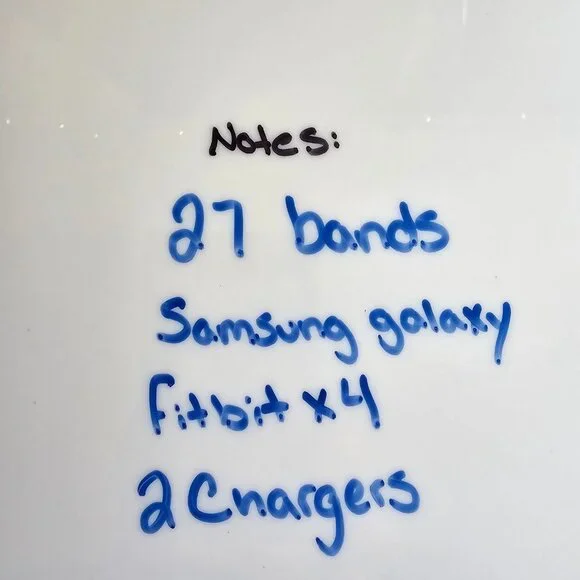 Notes:
27 bands
Samsung galaxy
fitbit x4
2 Chargers